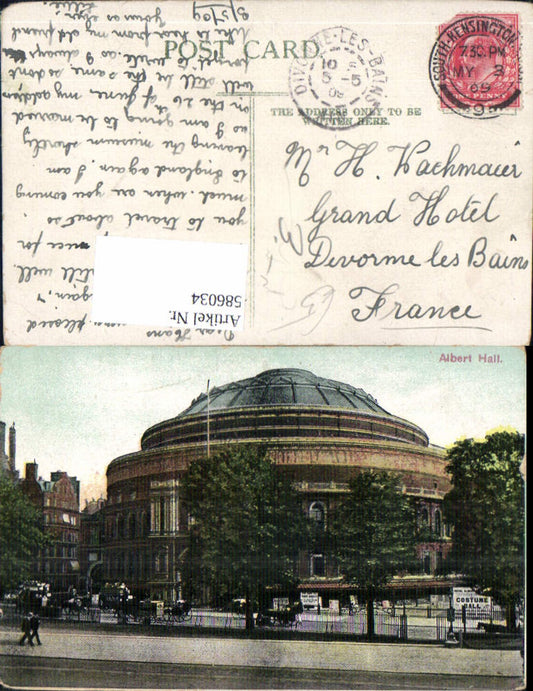 POST CARD.
THE ADDRESS ONLY TO BE
WRITTEN HERE.
SOUTH KENSINGTON
7.30 PM
MY 3
09
DIVONNE-LES-BAINS
5-5
09
Mr H. Wachmaier
Grand Hotel
Devorme les Bains
France
3/5/09
Dear Hans
very pleased
again,
still well.
nice for
you to travel about so
much. when are you coming
to England again. I am
leaving the museum shortly
as I am going to be married
on the 26 of June. my address
will still be the same. so dont
forget to write. as I always
like to hear from my old friend
Yours as ever
Artikel Nr.
586034
Albert Hall.
COSTUME
BALL